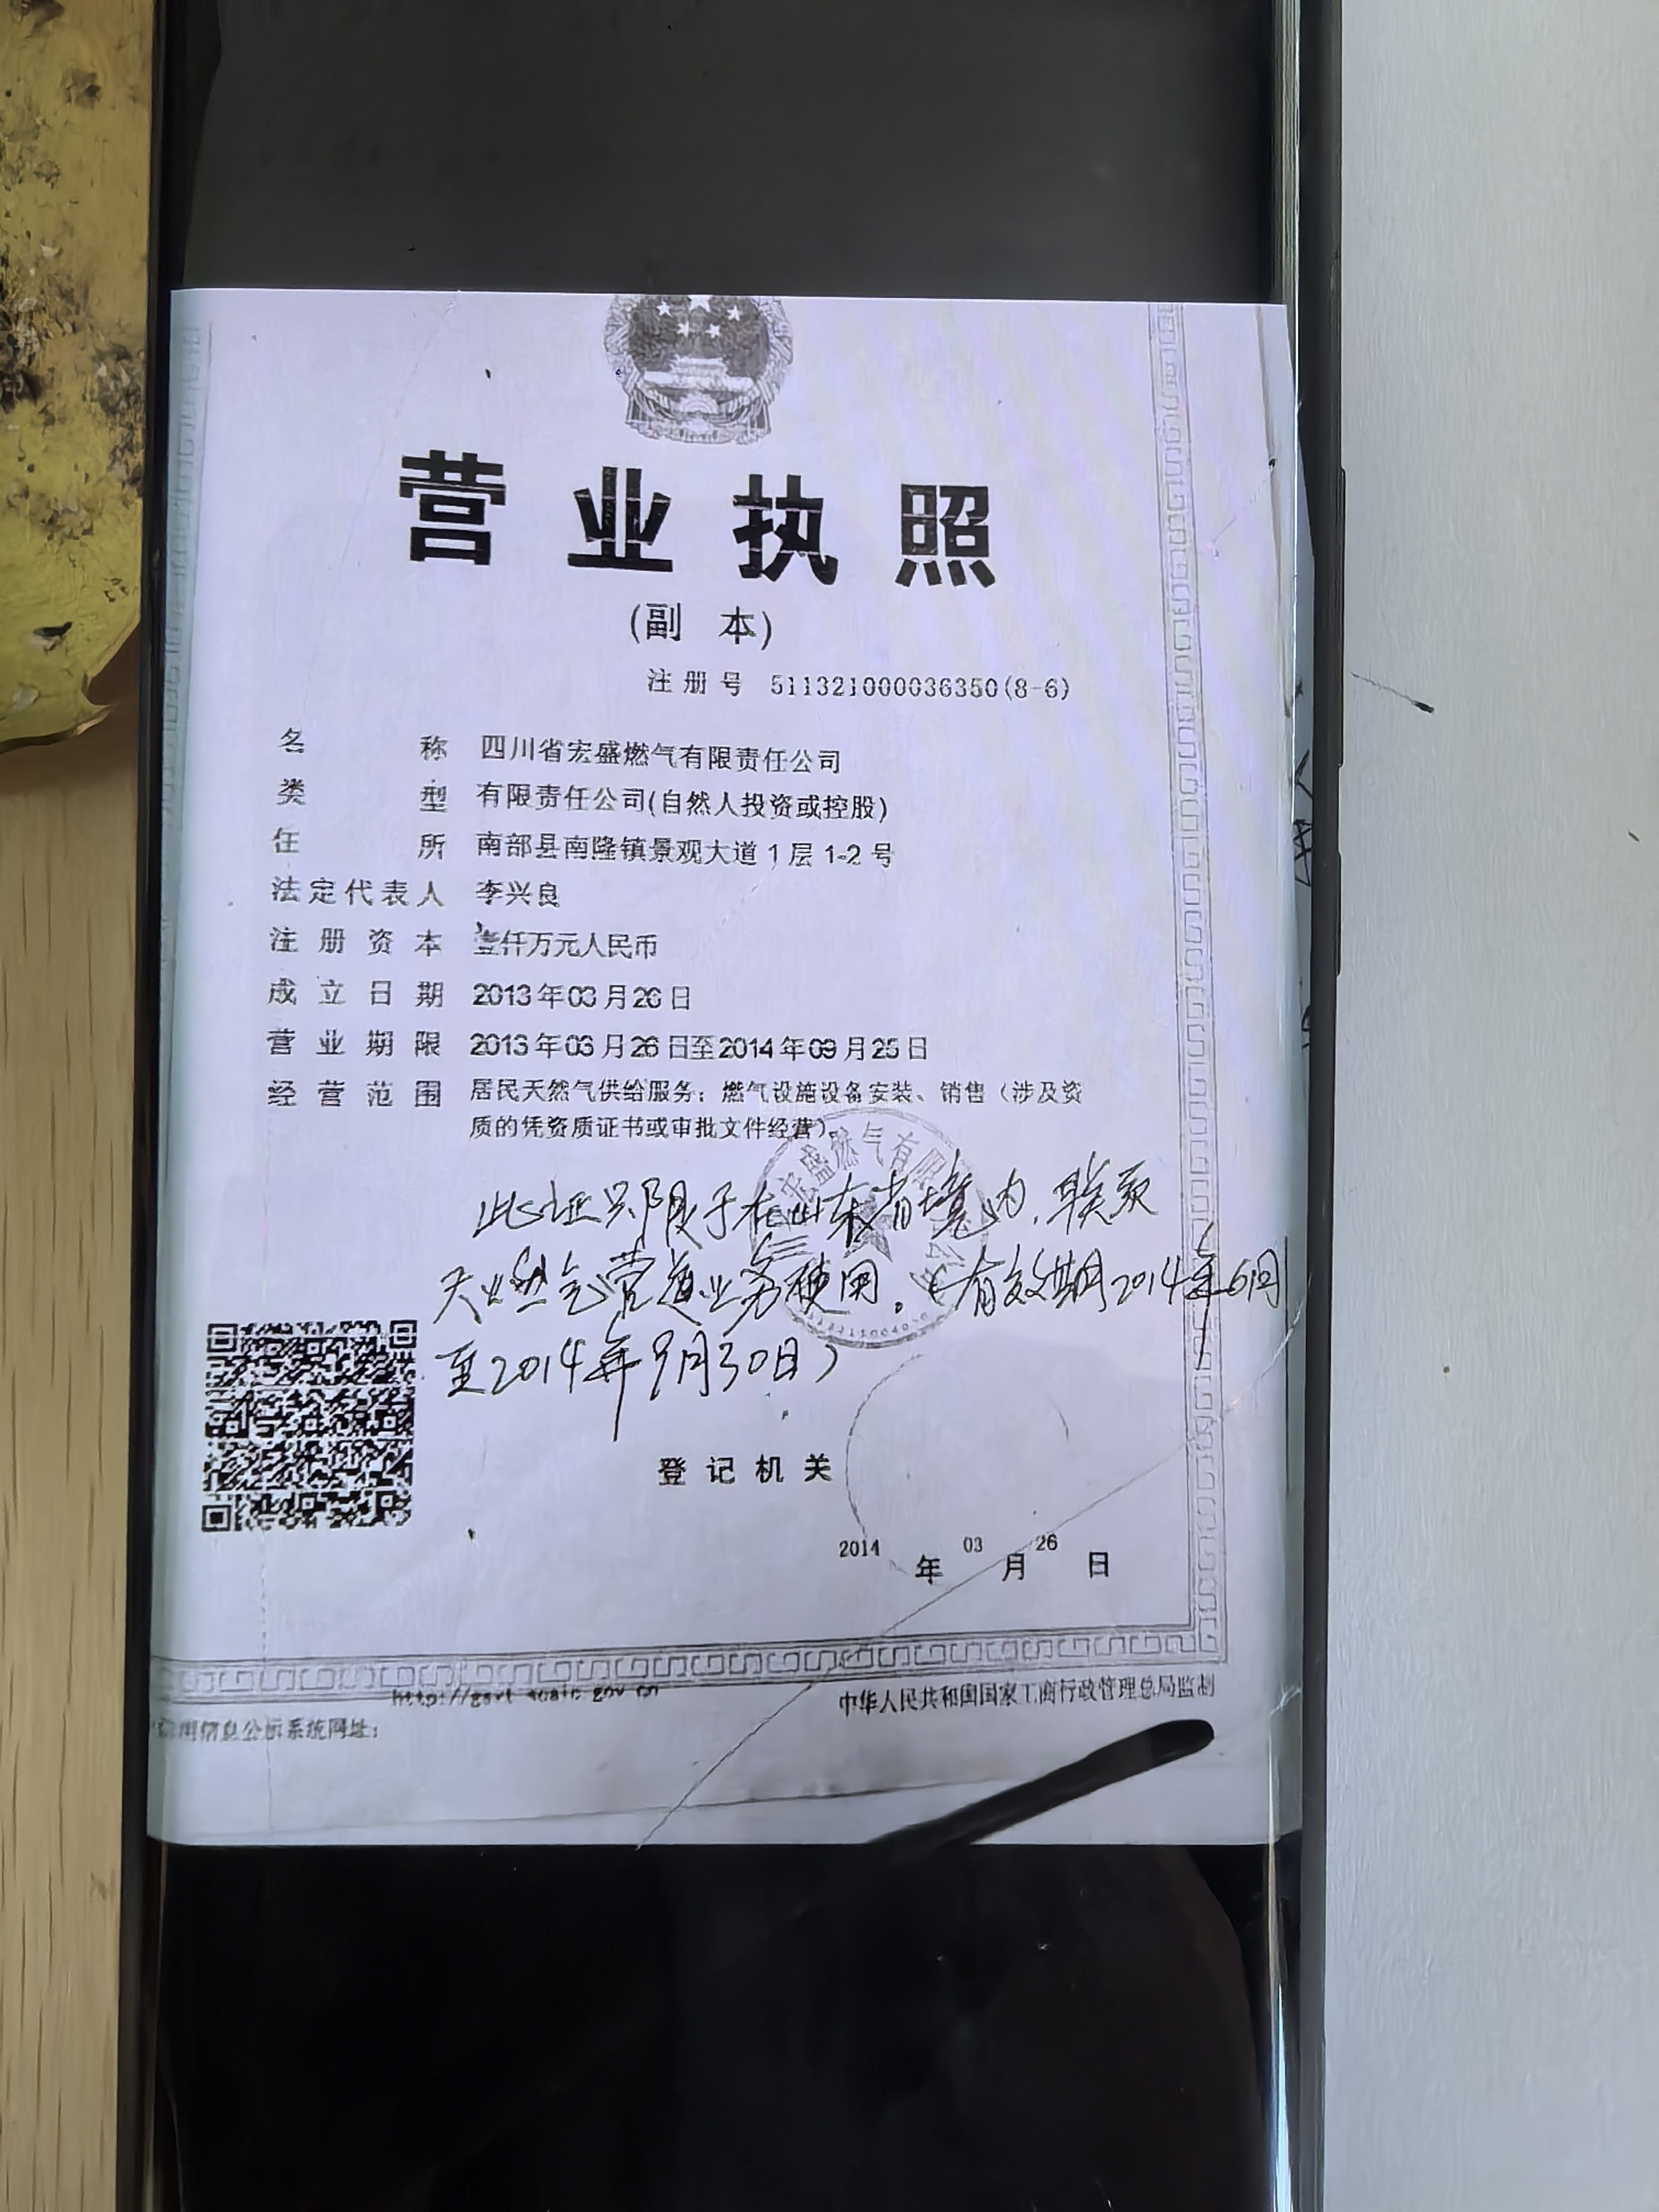 营业执照
(副 本)
注册号 511321000036350(8-6)
名称 四川省宏盛燃气有限责任公司
类型 有限责任公司(自然人投资或控股)
住所 南部县南隆镇景观大道1层1-2号
法定代表人 李兴良
注册资本 壹仟万元人民币
成立日期 2013年03月26日
营业期限 2013年03月26日至2014年09月25日
经营范围 居民天然气供给服务；燃气设施设备安装、销售（涉及资
质的凭资质证书或审批文件经营）。
宏盛燃气有限
此证只限于在山东省境内,联系
天燃气管道业务使用。(有效期2014年6月
至2014年9月30日)
登记机关
2014年03月26日
中华人民共和国国家工商行政管理总局监制
用信息公示系统网址：